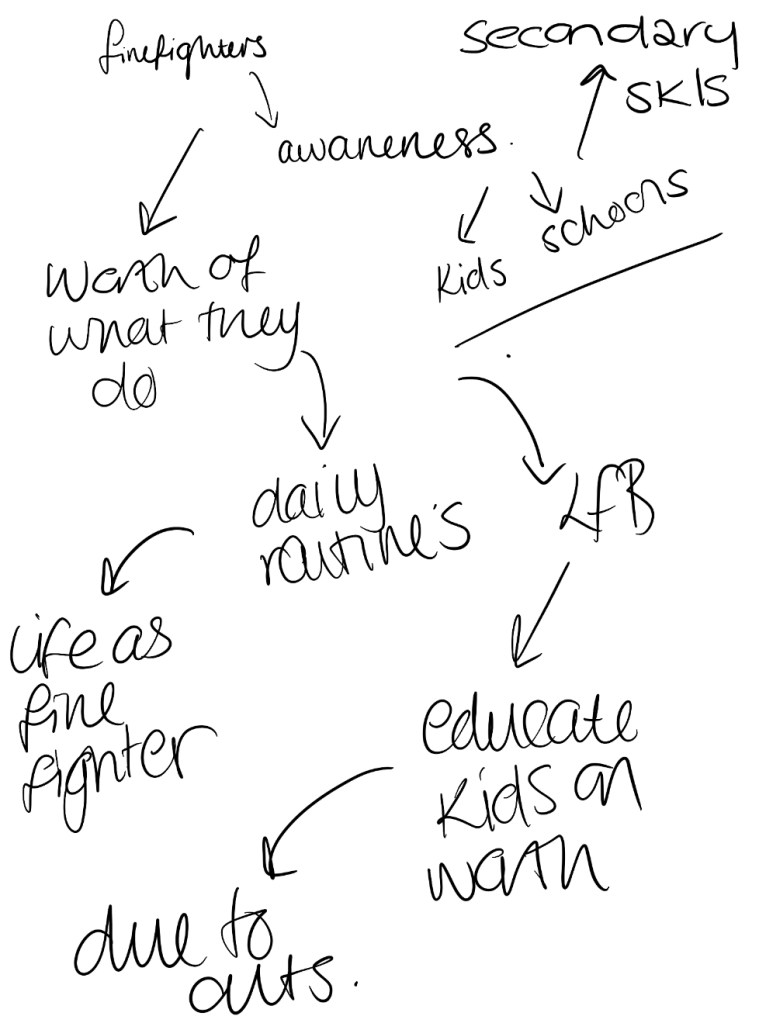 firefighters
secondary
skls
awareness.
kids
schools
worth of
what they
do
daily
routine's
LFB
life as
fire
fighter
educate
kids on
worth
due to
cuts.